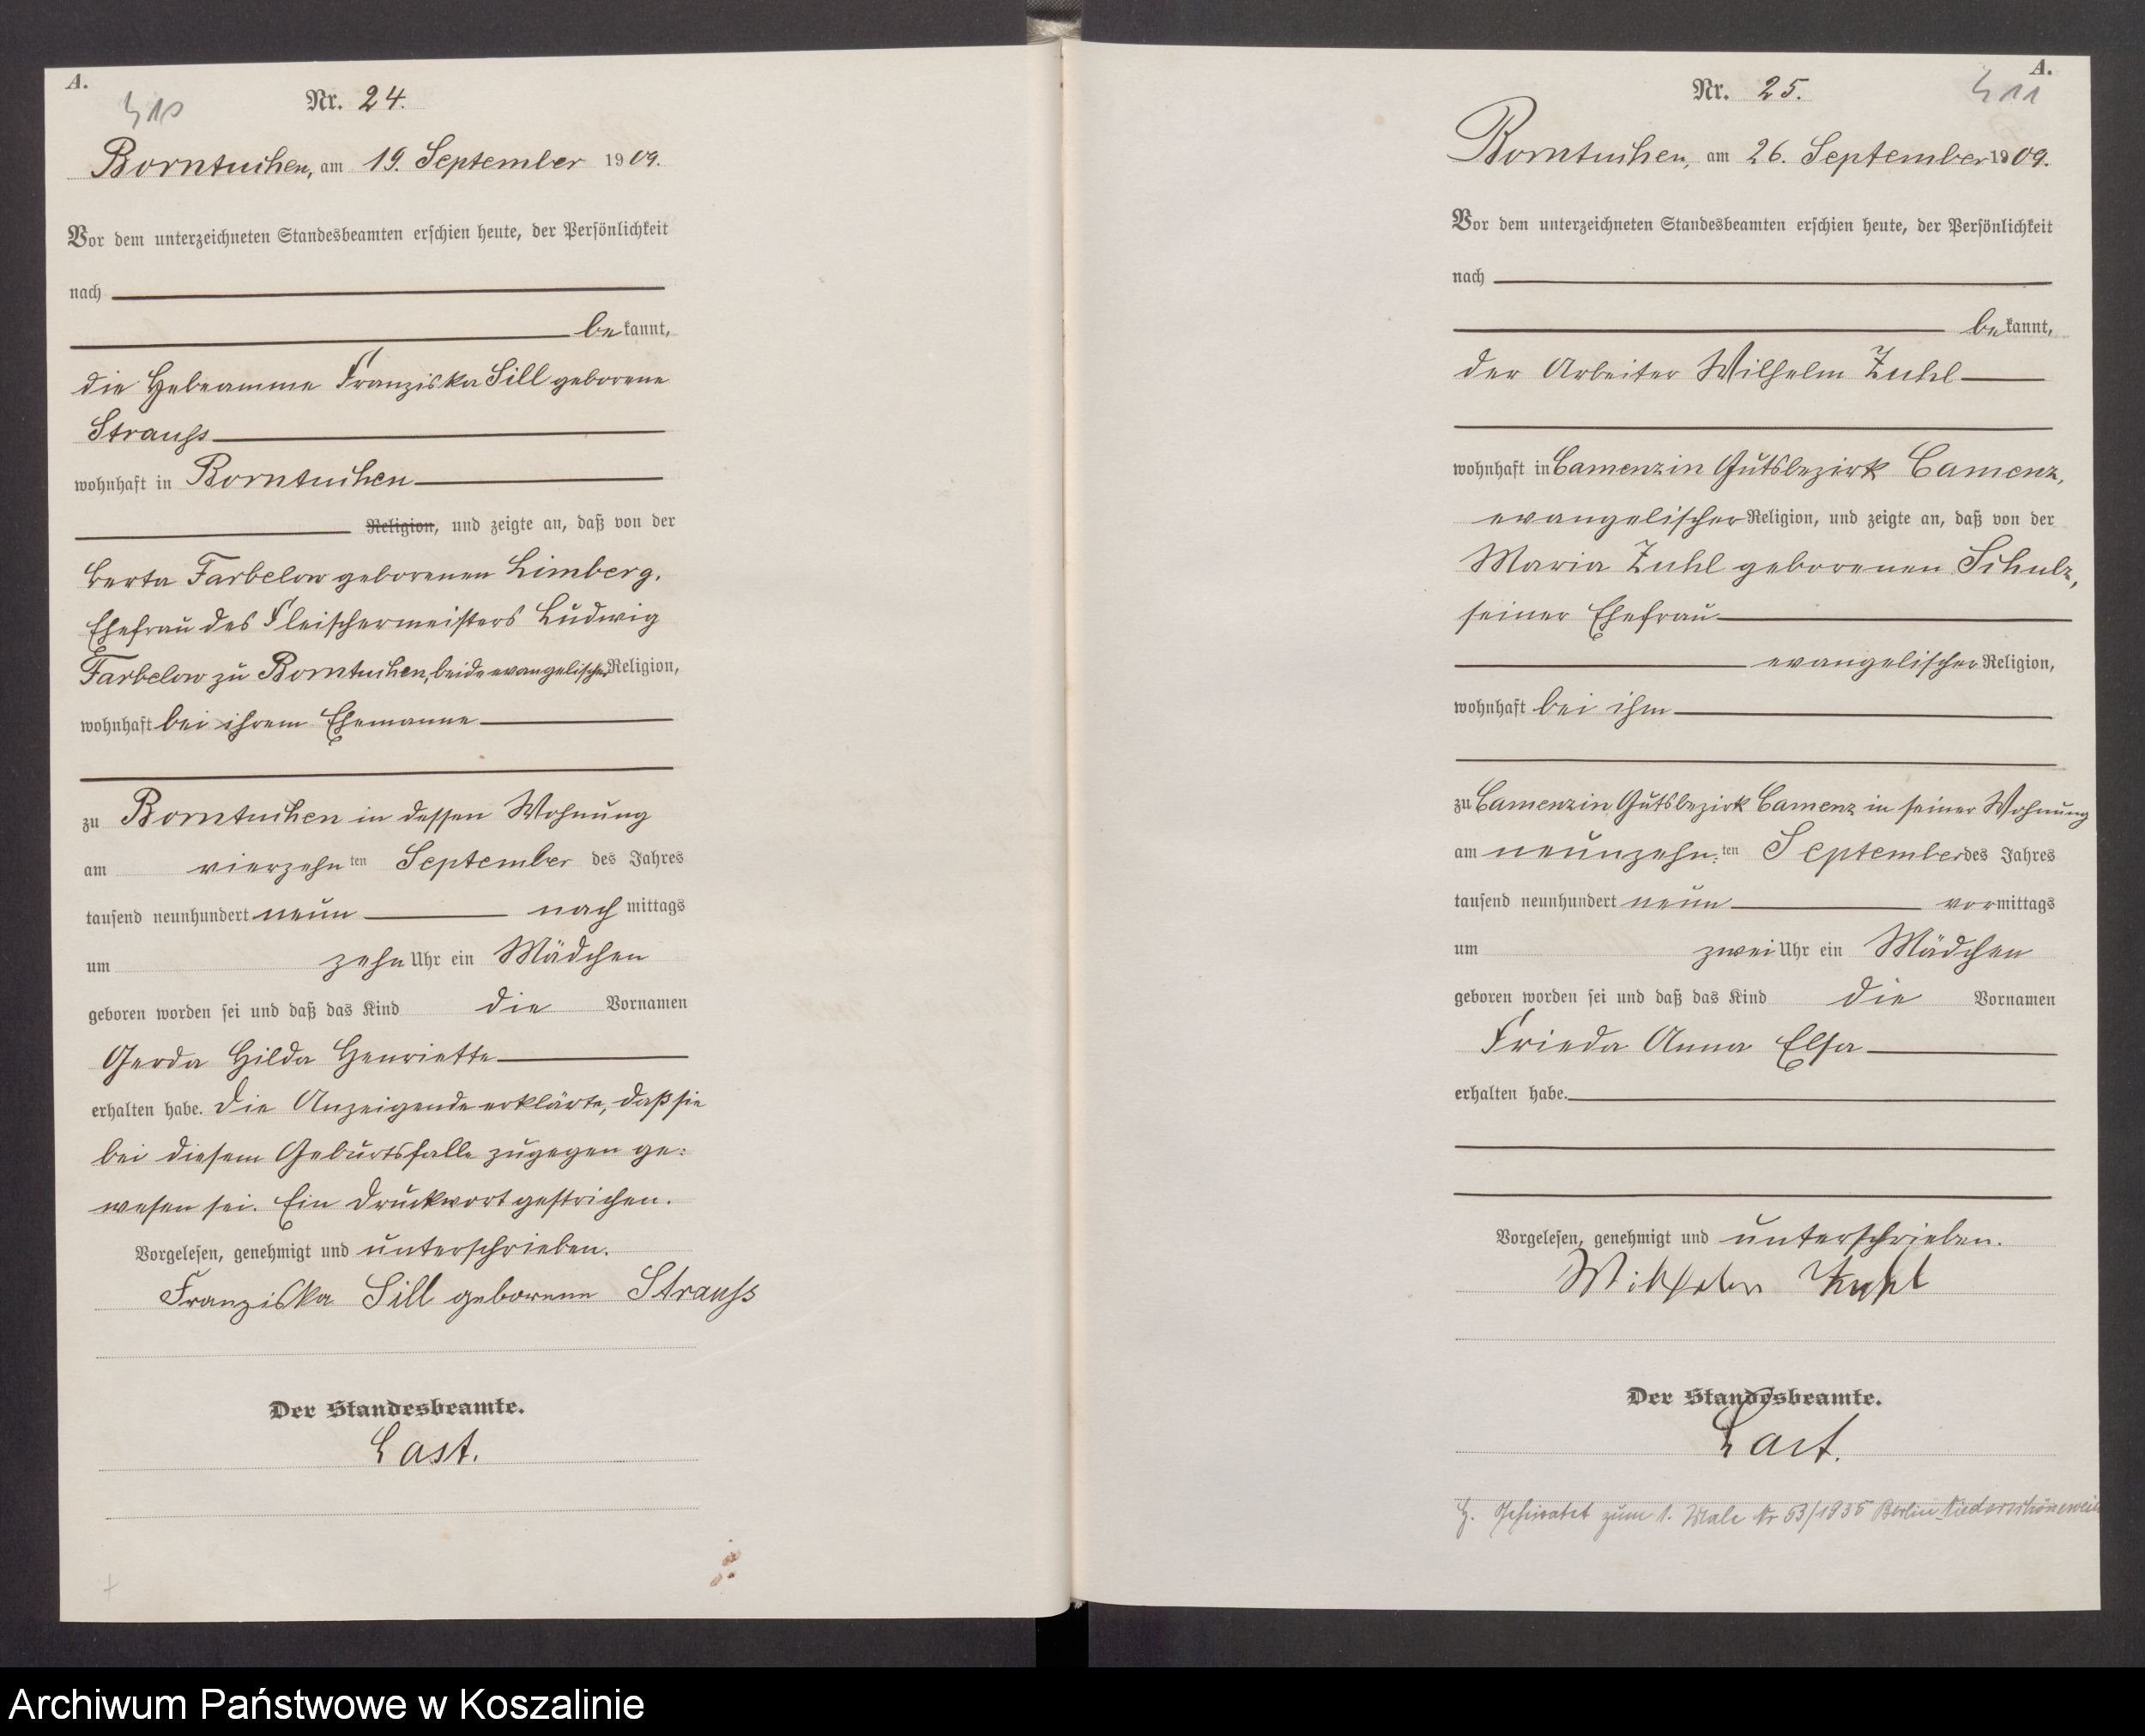 A.
410
Nr. 24.
Borntuchen, am 19. September 1909.
Vor dem unterzeichneten Standesbeamten erschien heute, der Persönlichkeit
nach
bekannt,
die Hebeamme Franziska Sill geborene
Strauss
wohnhaft in Borntuchen
Religion, und zeigte an, daß von der
Berta Farbelow geborenen Limberg,
Ehefrau des Fleischermeisters Ludwig
Farbelow zu Borntuchen, beide evangelischer Religion,
wohnhaft bei ihrem Ehemanne
zu Borntuchen in dessen Wohnung
am vierzehnten September des Jahres
tausend neunhundert neun nachmittags
um zehn Uhr ein Mädchen
geboren worden sei und daß das Kind die Vornamen
Gerda Hilda Henriette
erhalten habe. Die Anzeigende erklärte, daß sie
bei diesem Geburtsfalle zugegen ge:
wesen sei. Ein Druckwort gestrichen.
Vorgelesen, genehmigt und unterschrieben.
Franziska Sill geborene Strauss
Der Standesbeamte.
Last.
A.
411
Nr. 25.
Borntuchen, am 26. September 1909.
Vor dem unterzeichneten Standesbeamten erschien heute, der Persönlichkeit
nach
bekannt,
der Arbeiter Wilhelm Zuhl
wohnhaft in Camenzin Gutsbezirk Camenz,
evangelischer Religion, und zeigte an, daß von der
Maria Zuhl geborenen Schulz,
seiner Ehefrau
evangelischer Religion,
wohnhaft bei ihm
zu Camenzin Gutsbezirk Camenz in seiner Wohnung
am neunzehn:ten September des Jahres
tausend neunhundert neun vormittags
um zwei Uhr ein Mädchen
geboren worden sei und daß das Kind die Vornamen
Frieda Anna Elsa
erhalten habe.
Vorgelesen, genehmigt und unterschrieben.
Wilhelm Zuhl
Der Standesbeamte.
Last.
H. Geheiratet zum 1. Male Nr 53/1935 Berlin-Niederschönewei
Archiwum Państwowe w Koszalinie